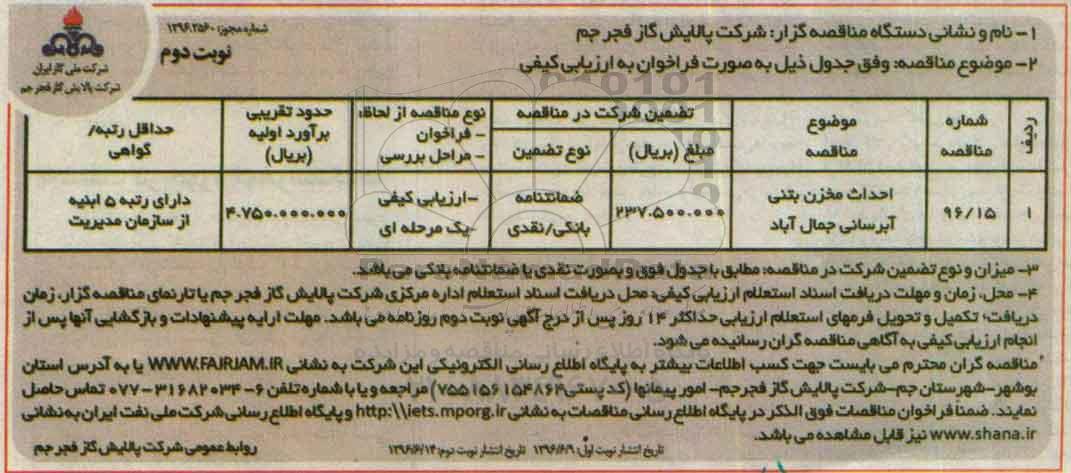 شماره مجوز: ۱۳۹۶.۲۵۶۰
نوبت دوم
شرکت ملی گاز ایران
شرکت پالایش گاز فجر جم
۱- نام و نشانی دستگاه مناقصه گزار: شرکت پالایش گاز فجر جم
۲- موضوع مناقصه: وفق جدول ذیل به صورت فراخوان به ارزیابی کیفی
ردیف
شماره مناقصه
موضوع مناقصه
تضمین شرکت در مناقصه
مبلغ (ریال)
نوع تضمین
نوع مناقصه از لحاظ:
- فراخوان
- مراحل بررسی
حدود تقریبی برآورد اولیه (ریال)
حداقل رتبه/ گواهی
۱
۹۶/۱۵
احداث مخزن بتنی
آبرسانی جمال آباد
۲۳۷.۵۰۰.۰۰۰
ضمانتنامه
بانکی/نقدی
-ارزیابی کیفی
-یک مرحله ای
۴.۷۵۰.۰۰۰.۰۰۰
دارای رتبه ۵ ابنیه
از سازمان مدیریت
۳- میزان و نوع تضمین شرکت در مناقصه: مطابق با جدول فوق و بصورت نقدی یا ضمانتنامه بانکی می باشد.
۴- محل، زمان و مهلت دریافت اسناد استعلام ارزیابی کیفی: محل دریافت اسناد استعلام اداره مرکزی شرکت پالایش گاز فجر جم یا تارنمای مناقصه گزار. زمان
دریافت؛ تکمیل و تحویل فرمهای استعلام ارزیابی حداکثر ۱۴ روز پس از درج آگهی نوبت دوم روزنامه می باشد. مهلت ارایه پیشنهادات و بازگشایی آنها پس از
انجام ارزیابی کیفی به آگاهی مناقصه گران رسانیده می شود.
*مناقصه گران محترم می بایست جهت کسب اطلاعات بیشتر به پایگاه اطلاع رسانی الکترونیکی این شرکت به نشانی WWW.FAJRJAM.IR یا به آدرس استان
بوشهر-شهرستان جم-شرکت پالایش گاز فجر جم- امور پیمانها (کد پستی ۷۵۵۱۵۶۱۵۴۸۶۴) مراجعه و یا با شماره تلفن ۶-۳۱۶۸۲۰۳۴-۰۷۷ تماس حاصل
نمایند. ضمنا فراخوان مناقصات فوق الذکر در پایگاه اطلاع رسانی مناقصات به نشانی http:\\iets.mporg.ir و پایگاه اطلاع رسانی شرکت ملی نفت ایران به نشانی
www.shana.ir نیز قابل مشاهده می باشد.
تاریخ انتشار نوبت اول: ۱۳۹۶/۶/۹ تاریخ انتشار نوبت دوم: ۱۳۹۶/۶/۱۴
روابط عمومی شرکت پالایش گاز فجر جم